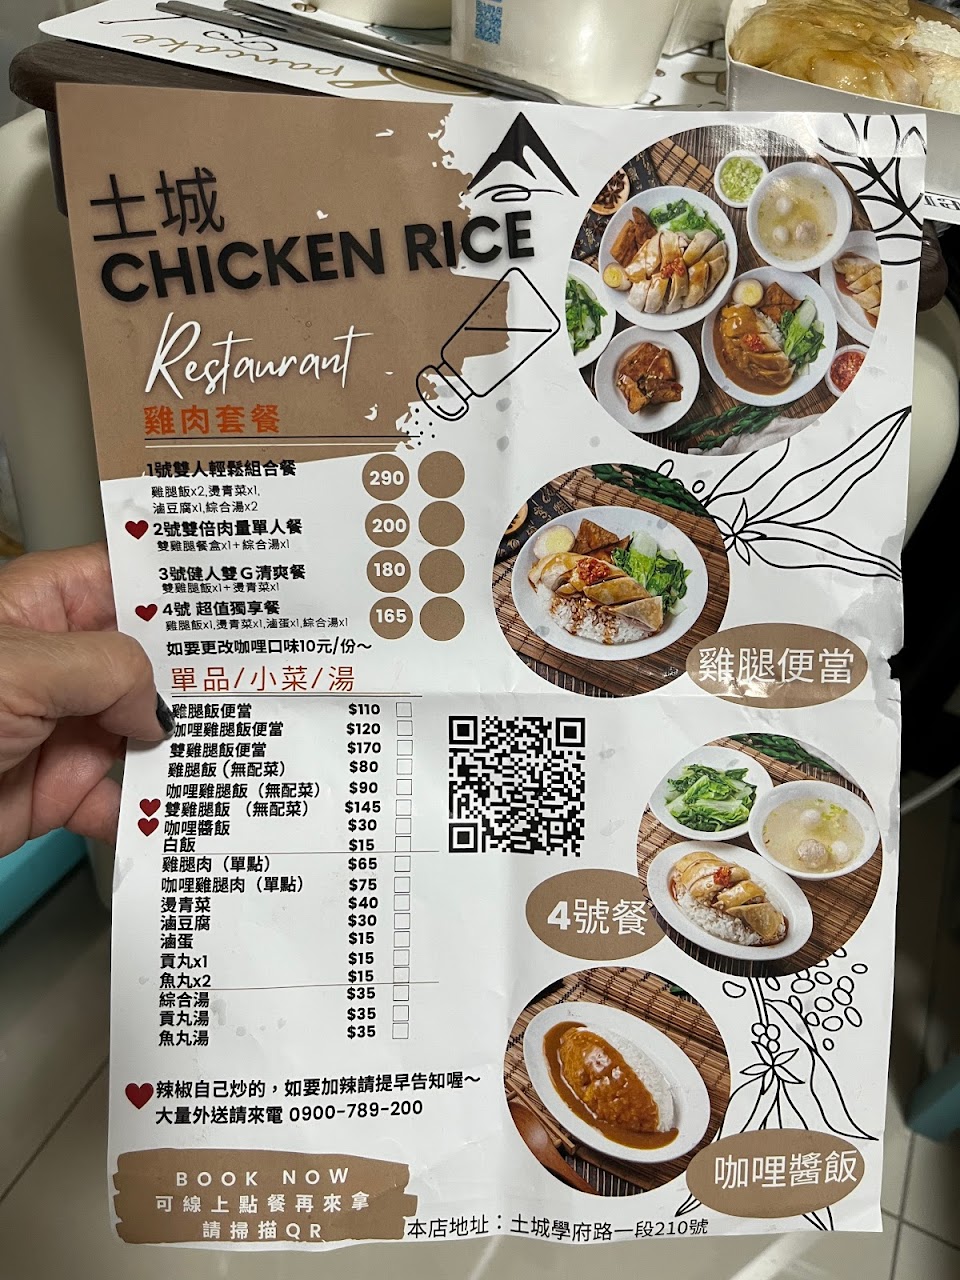 pancake
土城
CHICKEN RICE
Restaurant
雞肉套餐
1號雙人輕鬆組合餐 290
雞腿飯x2,燙青菜x1,
滷豆腐x1,綜合湯x2
2號雙倍肉量單人餐 200
雙雞腿餐盒x1+綜合湯x1
3號健人雙G清爽餐 180
雙雞腿飯x1+燙青菜x1
4號 超值獨享餐 165
雞腿飯x1,燙青菜x1,滷蛋x1,綜合湯x1
如要更改咖哩口味10元/份~
單品/小菜/湯
雞腿飯便當 $110
咖哩雞腿飯便當 $120
雙雞腿飯便當 $170
雞腿飯 (無配菜) $80
咖哩雞腿飯 (無配菜) $90
雙雞腿飯 (無配菜) $145
咖哩醬飯 $30
白飯 $15
雞腿肉 (單點) $65
咖哩雞腿肉 (單點) $75
燙青菜 $40
滷豆腐 $30
滷蛋 $15
貢丸x1 $15
魚丸x2 $15
綜合湯 $35
貢丸湯 $35
魚丸湯 $35
辣椒自己炒的,如要加辣請提早告知喔~
大量外送請來電 0900-789-200
BOOK NOW
可線上點餐再來拿
請掃描QR
雞腿便當
4號餐
咖哩醬飯
本店地址:土城學府路一段210號